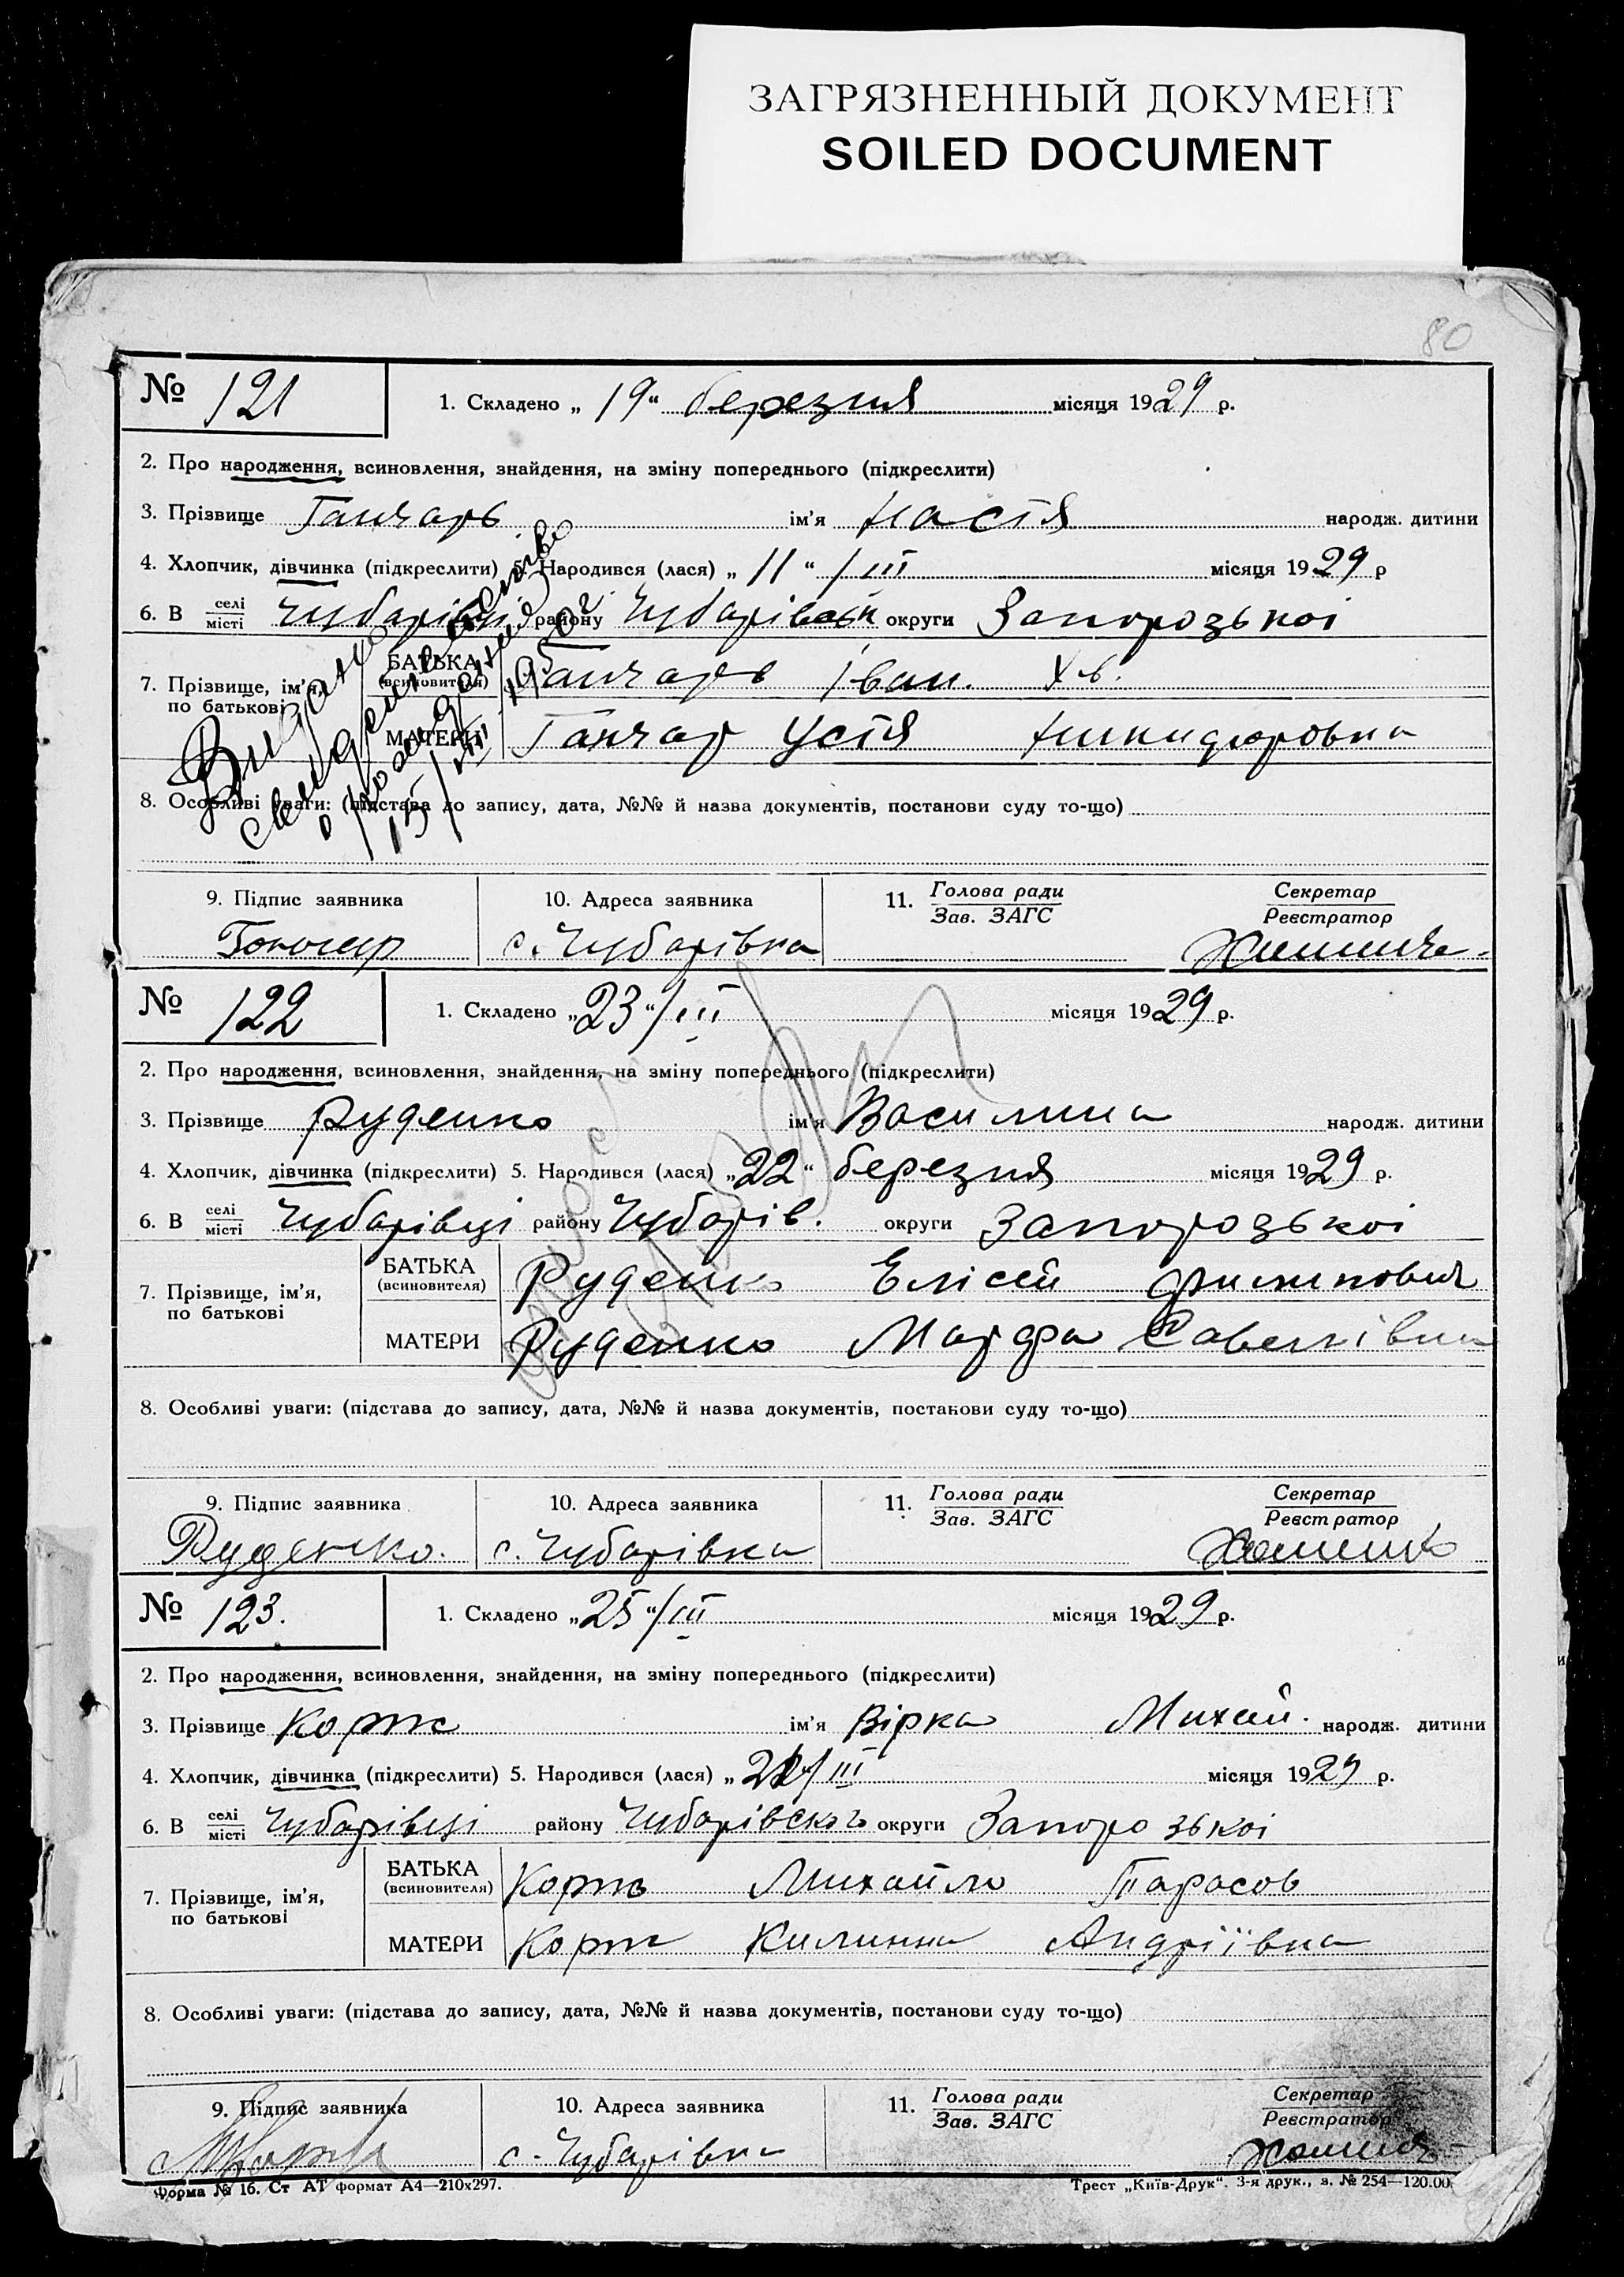 ЗАГРЯЗНЕННЫЙ ДОКУМЕНТ
SOILED DOCUMENT
80
№ 121
1. Складено „19“ березня місяця 1929 р.
2. Про народження, всиновлення, знайдення, на зміну попереднього (підкреслити)
3. Прізвище Ганчарь ім’я Настя народж. дитини
4. Хлопчик, дівчинка (підкреслити) 5. Народився (лася) „11“/III місяця 1929 р
6. В селі місті Чубарівці району Чубарівськ округи Запорозькоі
7. Прізвище, ім’я, по батькові
БАТЬКА (всиновителя) Ганчарь Іван. Хв.
МАТЕРИ Ганчар Устя Никидоровна
Видано
свидетельство
о рождении
15/III 1950 г
8. Особливі уваги: (підстава до запису, дата, №№ й назва документів, постанови суду то-що)
9. Підпис заявника
10. Адреса заявника
11. Голова ради
Зав. ЗАГС
Секретар
Реєстратор
с. Чубарівка
№ 122
1. Складено „23“/III місяця 1929 р.
2. Про народження, всиновлення, знайдення, на зміну попереднього (підкреслити)
3. Прізвище Руденко ім’я Василина народж. дитини
4. Хлопчик, дівчинка (підкреслити) 5. Народився (лася) „22“ березня місяця 1929 р.
6. В селі місті Чубарівці району Чубарів. округи Запорозькоі
7. Прізвище, ім’я, по батькові
БАТЬКА (всиновителя) Руденко Елісей Филипович
МАТЕРИ Руденко Марфа Савелівна
8. Особливі уваги: (підстава до запису, дата, №№ й назва документів, постанови суду то-що)
9. Підпис заявника
10. Адреса заявника
11. Голова ради
Зав. ЗАГС
Секретар
Реєстратор
Руденко. с. Чубарівка
№ 123.
1. Складено „25“/III місяця 1929 р.
2. Про народження, всиновлення, знайдення, на зміну попереднього (підкреслити)
3. Прізвище Корж ім’я Вірка Михай. народж. дитини
4. Хлопчик, дівчинка (підкреслити) 5. Народився (лася) „ /III місяця 1929 р.
6. В селі місті Чубарівці району Чубарівского округи Запорозькоі
7. Прізвище, ім’я, по батькові
БАТЬКА (всиновителя) Коржь Михайло Тарасов
МАТЕРИ Корж Килина Андріївна
8. Особливі уваги: (підстава до запису, дата, №№ й назва документів, постанови суду то-що)
9. Підпис заявника
10. Адреса заявника
11. Голова ради
Зав. ЗАГС
Секретар
Реєстратор
с. Чубарівка
Форма № 16. Ст АТ формат А4—210x297.
Трест „Київ-Друк“. 3-я друк., з. № 254—120.00